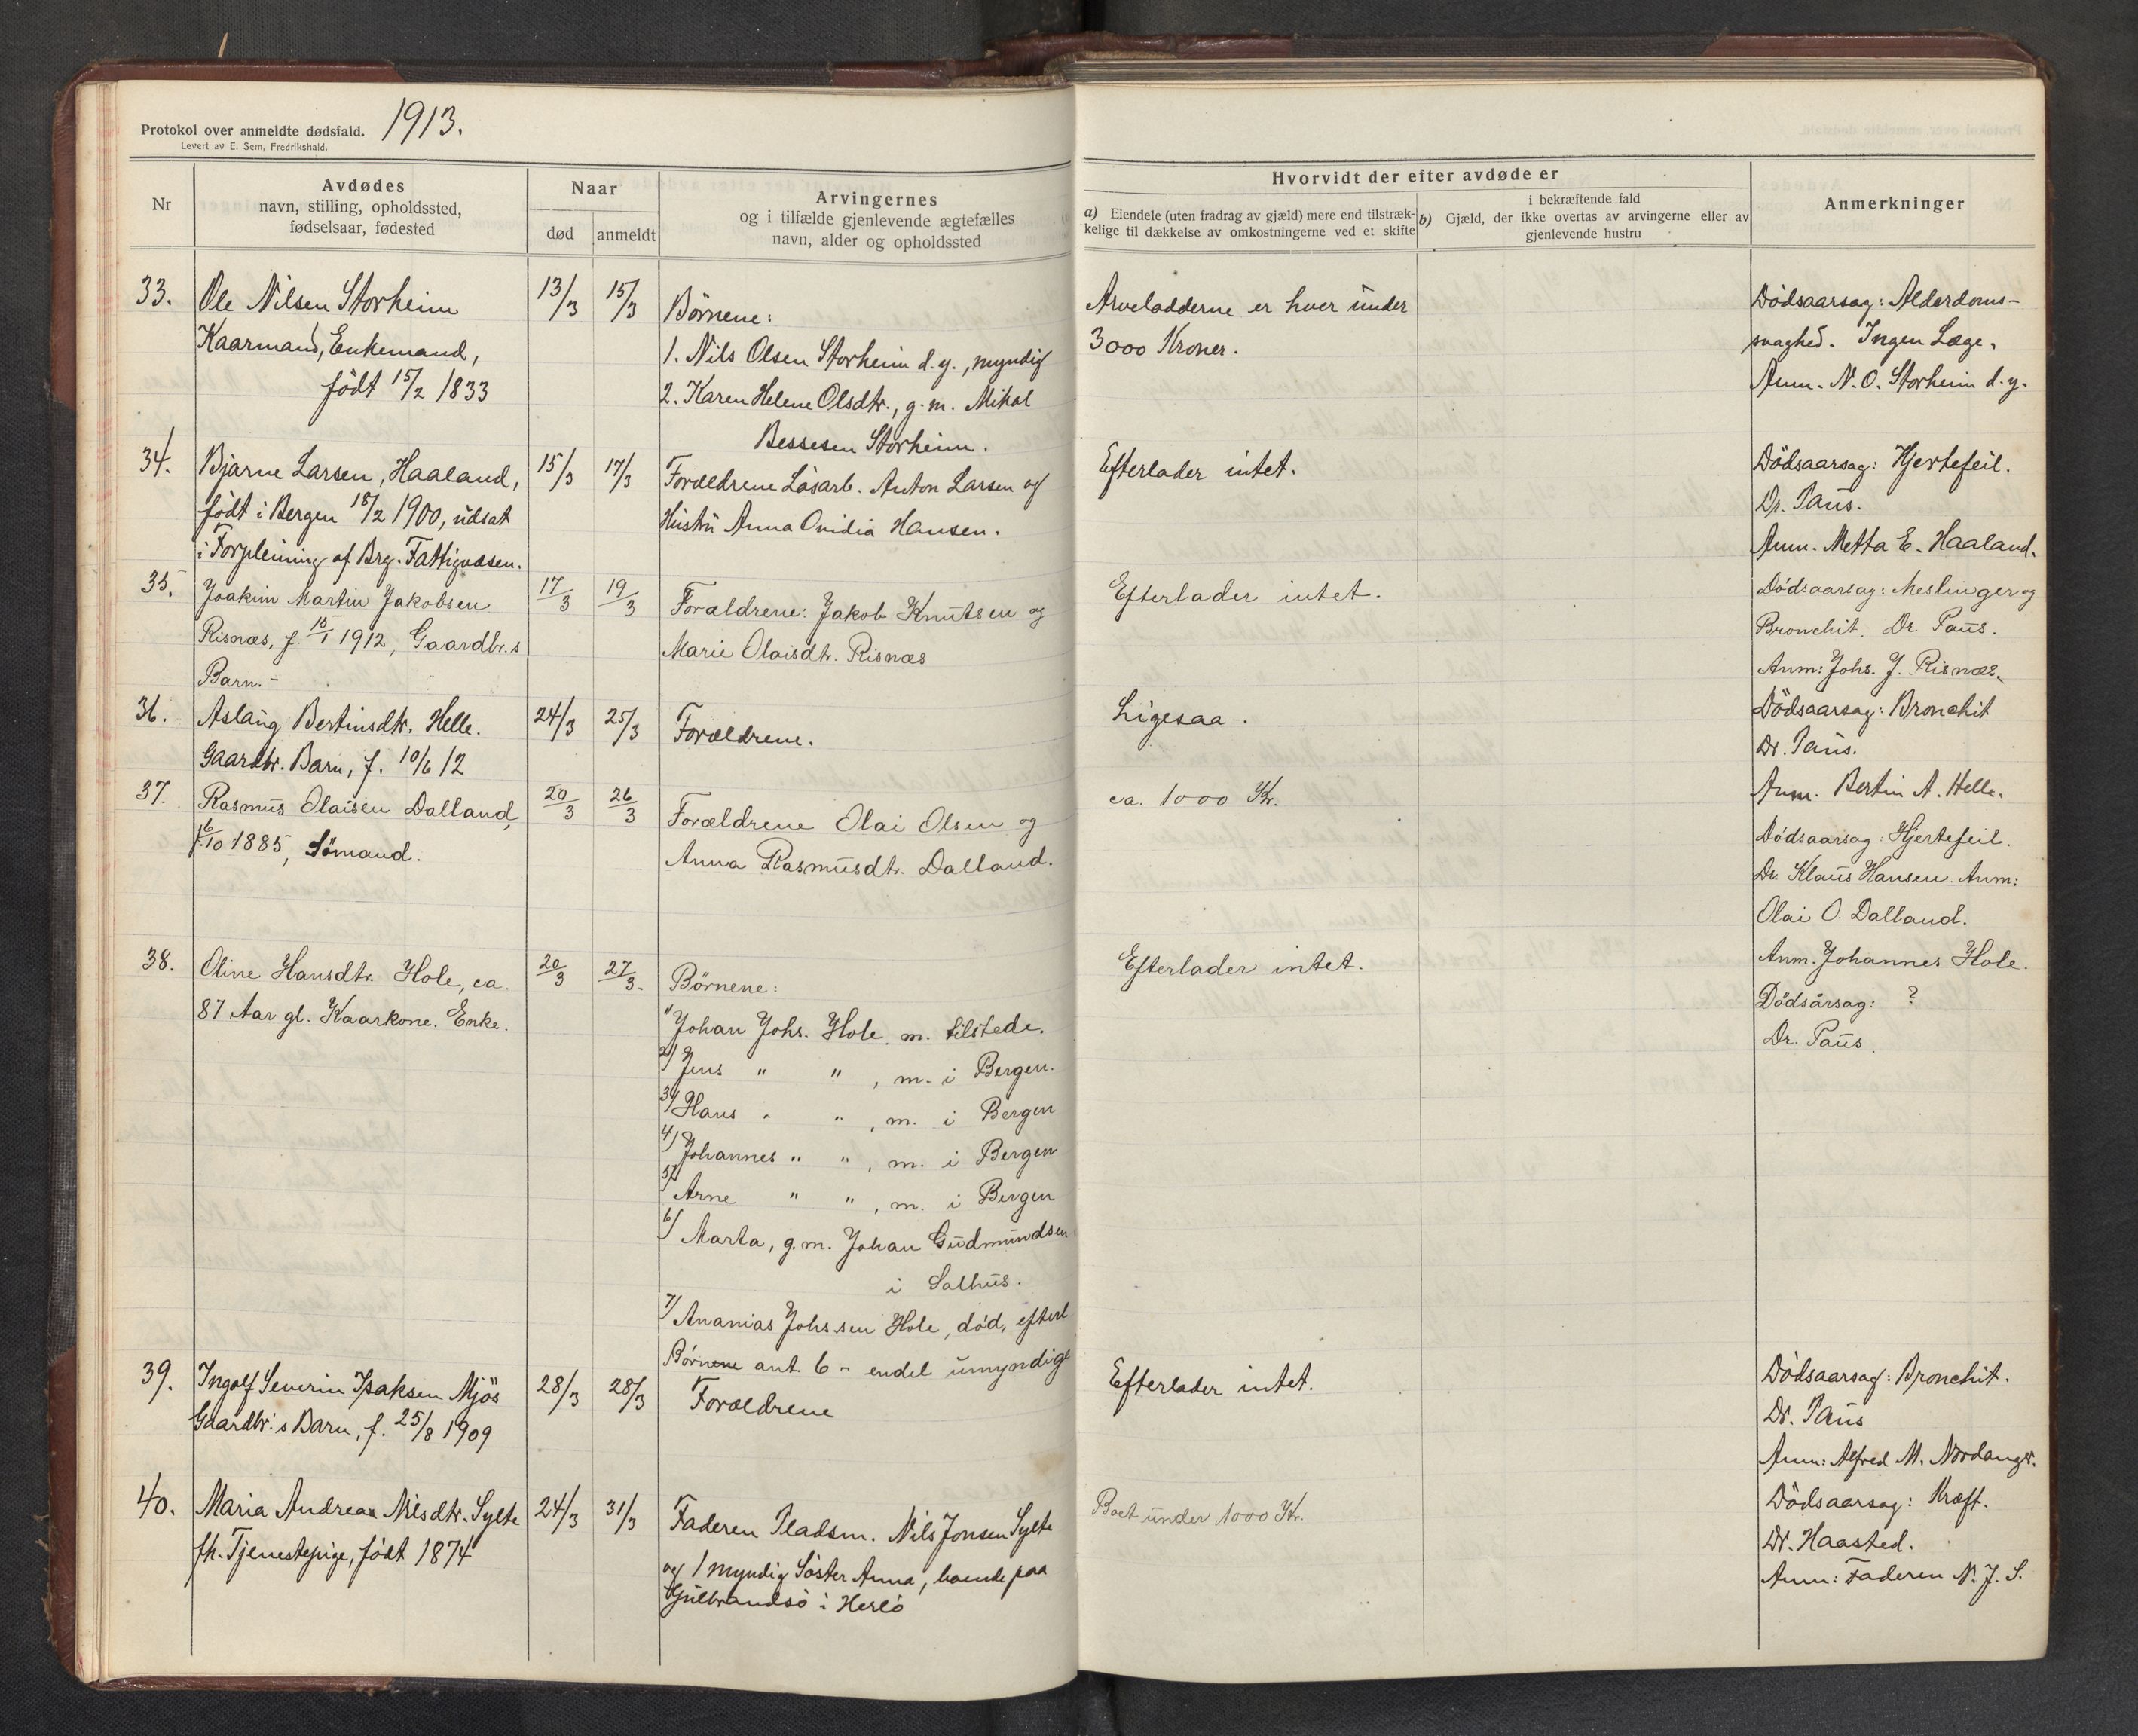 Protokol over anmeldte dødsfald. 1913.
Levert av E. Sem, Fredrikshald.
Nr
Avdødes
navn, stilling, opholdssted,
fødselsaar, fødested
Naar
død
anmeldt
Arvingernes
og i tilfælde gjenlevende ægtefælles
navn, alder og opholdssted
Hvorvidt der efter avdøde er
a) Eiendele (uten fradrag av gjæld) mere end tilstræk-
kelige til dækkelse av omkostningerne ved et skifte
i bekræftende fald
b) Gjæld, der ikke overtas av arvingerne eller av
gjenlevende hustru
Anmerkninger
33.
Ole Nilsen Storheim
Kaarmand, Enkemand,
født 15/2 1833
13/3
15/3
Börnene:
1. Nils Olsen Storheim d.y., myndig
2. Karen Helene Olsdtr., g.m. Mikal
Bessesen Storheim.
Arveladderne er hver under
3000 Kroner.
Dödsaarsag: Alderdoms-
svaghed. Ingen Læge.
Anm. N.O. Storheim d.y.
34.
Bjarne Larsen, Haaland,
født i Bergen 18/2 1900, udsat
i Forpleining af Brg. Fattigvæsen.
15/3
17/3
Forældrene Løsarb. Anton Larsen og
Hustru Anna Ovidia Hansen.
Efterlader intet.
Dödsaarsag: Hjertefeil.
Dr. Paus.
Anm. Metta E. Haaland.
35.
Joakim Martin Jakobsen
Risnæs, f. 15/1 1912, Gaardbr.s
Barn.-
17/3
19/3
Forældrene: Jakob Knutsen og
Marie Olaisdtr. Risnæs
Efterlader intet.
Dödsaarsag: Meslinger og
Bronchit. Dr. Paus.
Anm: Johs. J. Risnæs.
36.
Aslaug Bertinsdtr. Helle.
Gaardbr. Barn, f. 10/6 12
24/3
25/3
Forældrene.
Ligesaa.
Dödsaarsag: Bronchit
Dr. Paus.
Anm. Bertin A. Helle.
37.
Rasmus Olaisen Dalland,
f. 6/10 1885, Sömand.
20/3
26/3
Forældrene Olai Olsen og
Anna Rasmusdtr. Dalland.
ca. 1000 Kr.
Dödsaarsag: Hjertefeil.
Dr. Klaus Hansen. Anm:
Olai O. Dalland.
38.
Oline Hansdtr. Hole, ca.
87 Aar gl. Kaarkone. Enke.
20/3
27/3.
Börnene:
1/ Johan Johs. Hole, m. tilstede.
2/ Jens " " , m. i Bergen.
3/ Hans " " , m. i Bergen
4/ Johannes " " , m. i Bergen
5/ Arne " " , m. i Bergen
6/ Marta, g.m. Johan Gudmundsen
i Salhus.
7/ Ananias Johs.sen Hole, död, efterl
Börnene ant. 6 - endel umyndige
Efterlader intet.
Anm. Johannes Hole.
Dödsårsag: ?
Dr. Paus.
39.
Ingolf Severin Isaksen Mjös
Gaardbr.s Barn, f. 25/8 1909
28/3
28/3
Forældrene
Efterlader intet.
Dödsaarsag: Bronchit.
Dr. Paus
Anm: Alfred M. Nordanger.
40.
Maria Andrea Nilsdtr. Sylte
fh. Tjenestepige, født 1874
24/3
31/3
Faderen Pladsm. Nils Jonsen Sylte
og 1 myndig Söster Anna, boende paa
Gulbrandsö i Herlö
Boet under 1000 Kr.
Dödsaarsag: Kræft.
Dr. Haasted.
Anm: Faderen N.J.S.